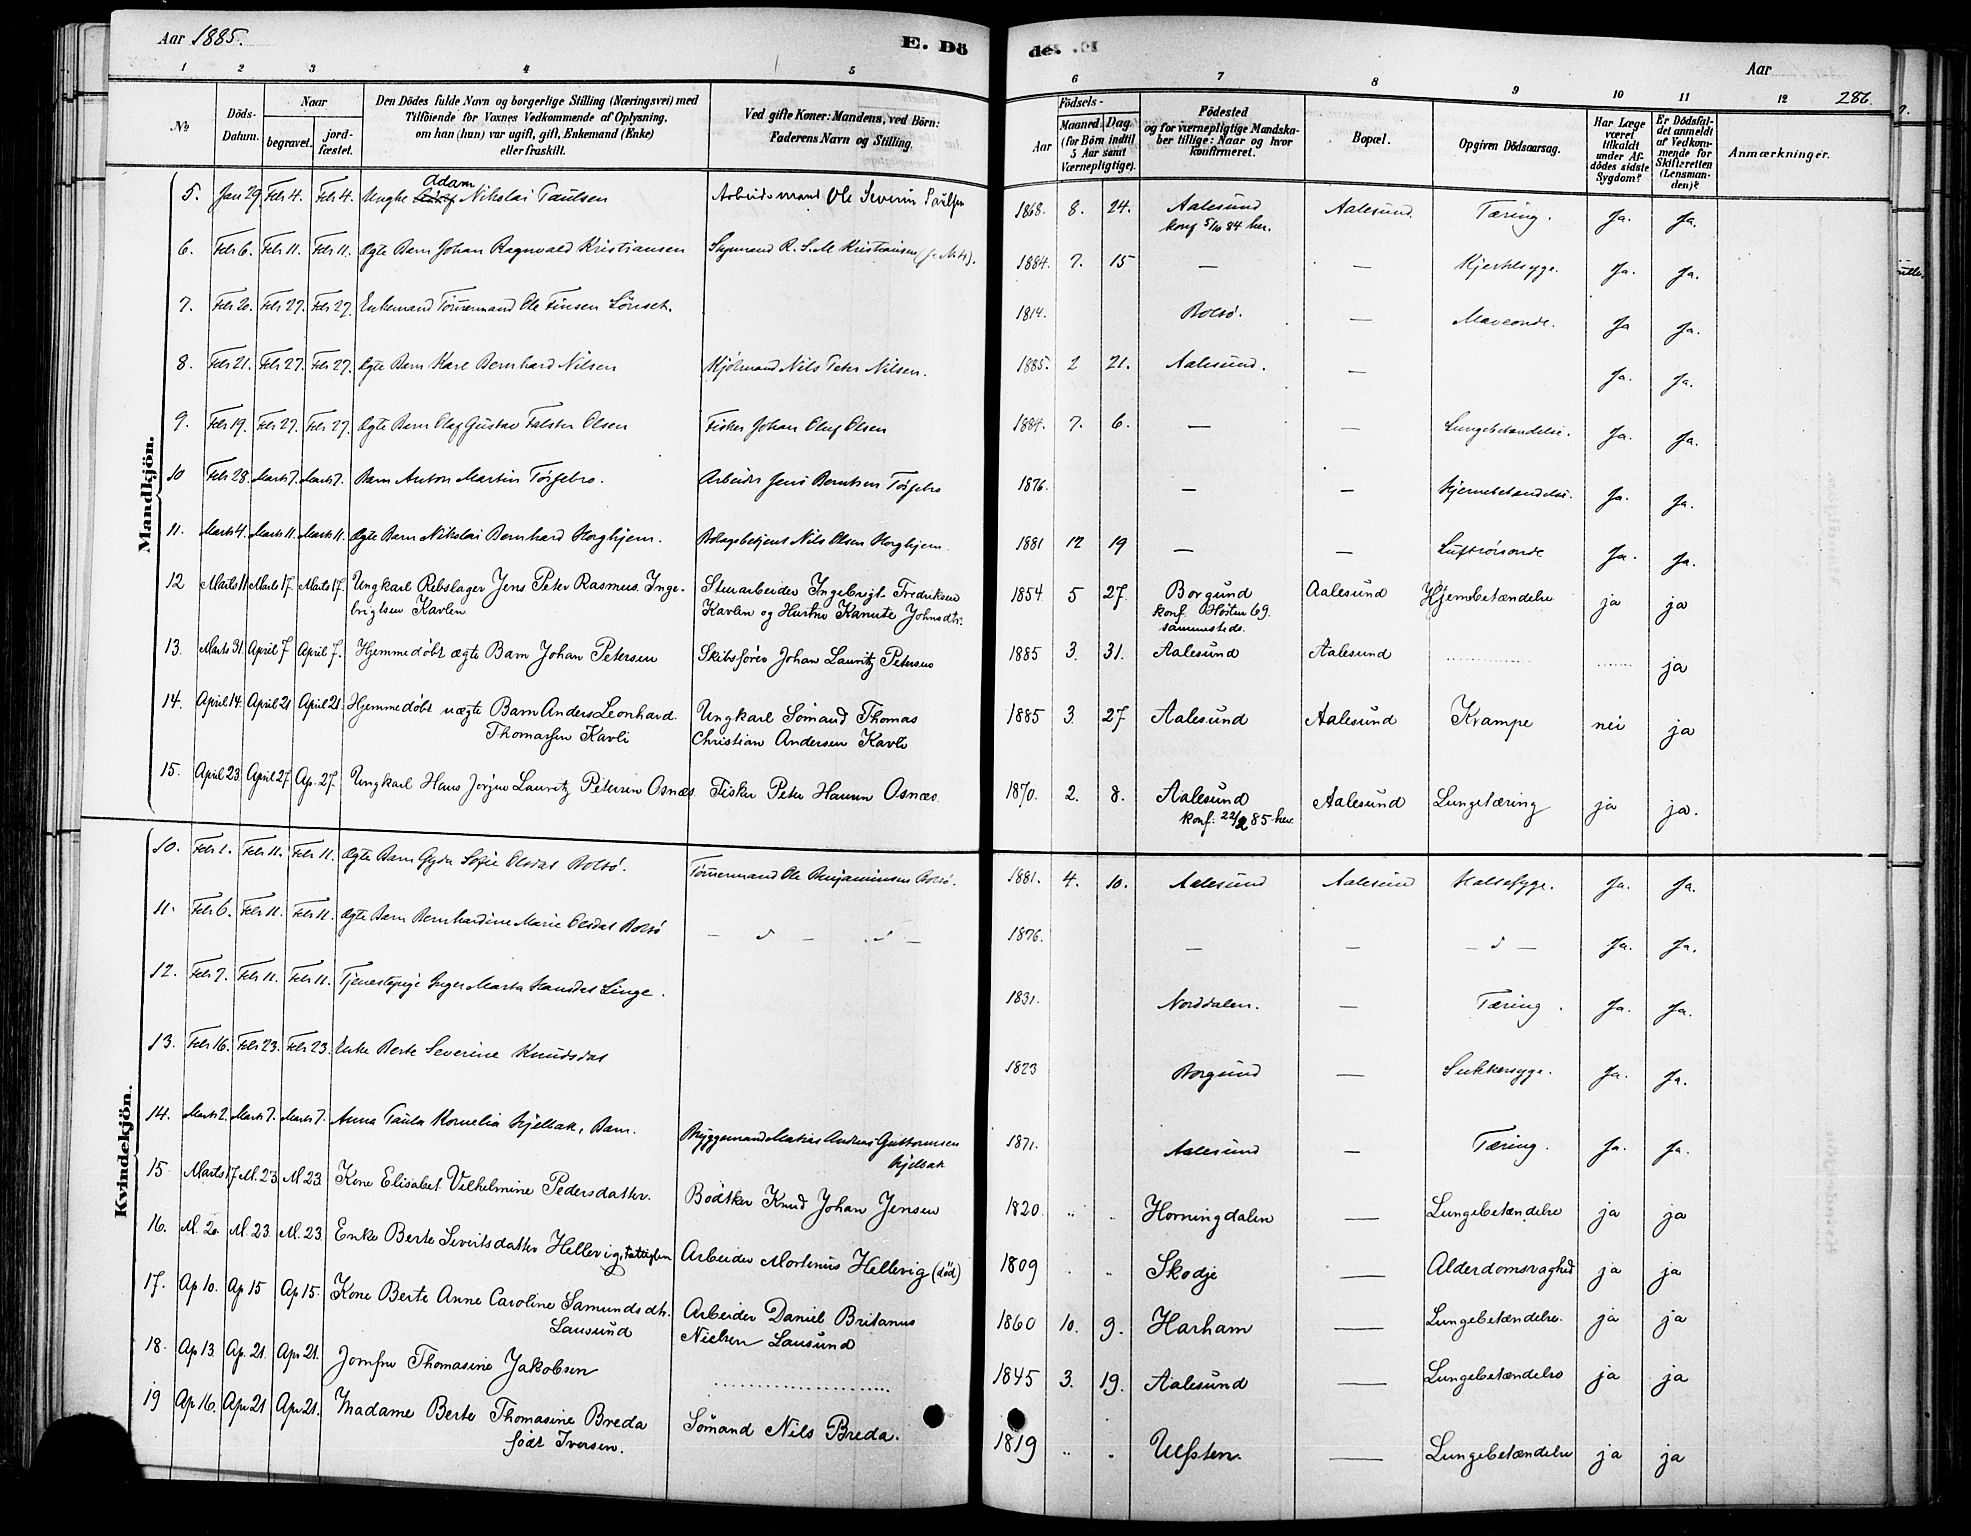 Aar 1885.
E. Dö
1 2 3 4 5
No Döds-Datum. Naar begravet. jord-fæstet. Den Dödes fulde Navn og borgerlige Stilling (Næringsvei) med Tilföiende for Voxnes Vedkommende af Oplysning, om han (hun) var ugift, gift, Enkemand (Enke) eller fraskilt. Ved gifte Koner: Mandens, ved Börn: Faderens Navn og Stilling.
de.
Aar
286.
6 7 8 9 10 11 12
Födsels- Aar Maaned. Dag (for Börn indtil 5 Aar samt Værnepligtige). Födested og for værnepligtige Mandskaber tillige: Naar og hvor konfirmeret. Bopæl. Opgiven Dödsaarsag. Har Læge været tilkaldt under Afdödes sidste Sygdom? Er Dödsfaldet anmeldt af Vedkommende for Skifteretten (Lensmanden)? Anmærkninger.
Mandkjön.
Adam
5. Jan 29 Febr 4. Febr 4. Nikolai Paulsen Arbeidsmand Ole Severin Paulsen 1868. 8. 24. Aalesund Aalesund. Tæring. Ja. Ja.
konf 5/10 84 her.
6. Febr 6. Febr 11. Febr 11. Ægte Barn Johan Ragnvald Kristiansen Kristiansen 1884. 7. 15 — — Kjertelsyge. Ja. Ja.
7. Febr 20. Febr 27. Febr 27. Enkemand Tømmermand Ole Finsen Lönset. 1814. Bolsö. — Maveonde. Ja Ja.
8. Febr 21. Febr 27. Febr 27. Ægte Barn Kare Bernhard Nilsen Kjölmand Nils Peter Nilsen. 1885. 2 21. Aalesund. — Ja. Ja.
9. Febr 19. Febr 27. Febr 27. Ægte Barn Olaf Gustav Falster Olsen Fisker Johan Oluf Olsen 1884. 7. 6. — — Lungebetændelse. Ja. Ja.
10 Febr 28. Marts 7. Marts 7. Barn Anton Martin Arbeider Jens Berntsen 1876. — — Hjernebetændelse. Ja. Ja.
11. Marts 4. Marts 11. Marts 11. Ægte Barn Nikolai Bernhard Horghjem. Bolagsbetjent Nils Olsen Horghjem. 1881 12 19 — — Luftrörsonde Ja. Ja.
12 Marts 11 Marts 17. Marts 17. Ungkarl Rebslager Jens Peter Rasmus Inge- Stuarbeider Ingebrigt Fredriksen 1854. 5 27. Borgund Aalesund Hjernebetændelse ja ja
brigtsen Kavlen Kavlen og Hustru Kanute Johnsdtr. konf. Høsten 69.
sammesteds.
13. Marts 31. April 7 April 7. Hjemmedöbt ægte Barn Johan Petersen Skibsförer Johan Lauritz Petersen 1885 3. 31. Aalesund Aalesund ........ ...... ja
14. April 14. April 21 April 21. Hjemmedöbt uægte Barn Anders Leonhard Ungkarl Sömand Thomas 1885 3. 27. Aalesund Aalesund Krampe nei ja
Thomassen Kavli Christian Andersen Kavli
15. April 23. April 27. Ap. 27. Ungkarl Hans Jörgen Lauritz Petersen Osnæs Fisker Peter Hansen Osnæs. 1870. 2. 8. Aalesund Aalesund Lungetæring ja ja.
konf: 22/2 85 her.
Kvindekjön.
10. Febr 1. Febr 11. Febr 11. Ægte Barn Gyda Sofie Olsdat Bolsö. Tömmermand Ole Benjaminsen Bolsö. 1881. 4. 10. Aalesund Aalesund Halsesyge. Ja. Ja.
11. Febr 6. Febr 11. Febr 11. Ægte Barn Bernhardine Marie Olsdat Bolsö — d — d — 1876. — — — d — Ja. Ja.
12. Febr 7. Febr 11. Febr 11. Tjenestepige Inger Marta Hansdat Linge. 1831. Norddalen. — Tæring. Ja. Ja.
13. Febr 16. Febr 23. Febr 23. Enke Berte Severine Knudsdat 1823 Borgund — Sukkersyge. Ja. Ja.
14. Marts 2. Marts 7. Marts 7. Anna Paula Kornelia Hjelbak, Barn. Byggemand Matias Andreas Guttormsen 1871. Aalesund — Tæring. Ja. Ja.
Hjelbak
15. Marts 17. M. 23. M. 23. Kone Elisabet Vilhelmine Pedersdatter. Bödtker Knud Johan Jensen 1820. " " Horningdalen — Lungebetændelse ja ja
16. M. 20. M. 23. M. 23 Enke Berte Sevritsdatter Hellevig, Arbeider Mortinus Hellevig (död) 1809 " " Skodje — Alderdomsvaghed ja ja
17. Ap 10. Ap 15 Ap 15. Kone Berte Anne Caroline Samundsdtr. Arbeider Daniel Britanus 1860 10. 9. Harham — Lungebetændelse. ja ja
Lausund Nielsen Lausund
18. Ap 13. Ap. 21. Apr 21. Jomfru Thomasine Jakobsen ........ 1845 3. 19. Aalesund — Lungebetændelse ja ja
19 Ap 16. Apr 21 Apr 21. Madame Berte Thomasine Breda Sömand Nils Breda. 1819 " " Ulfsten. — Lungebetændelse ja ja
födt Iversen.